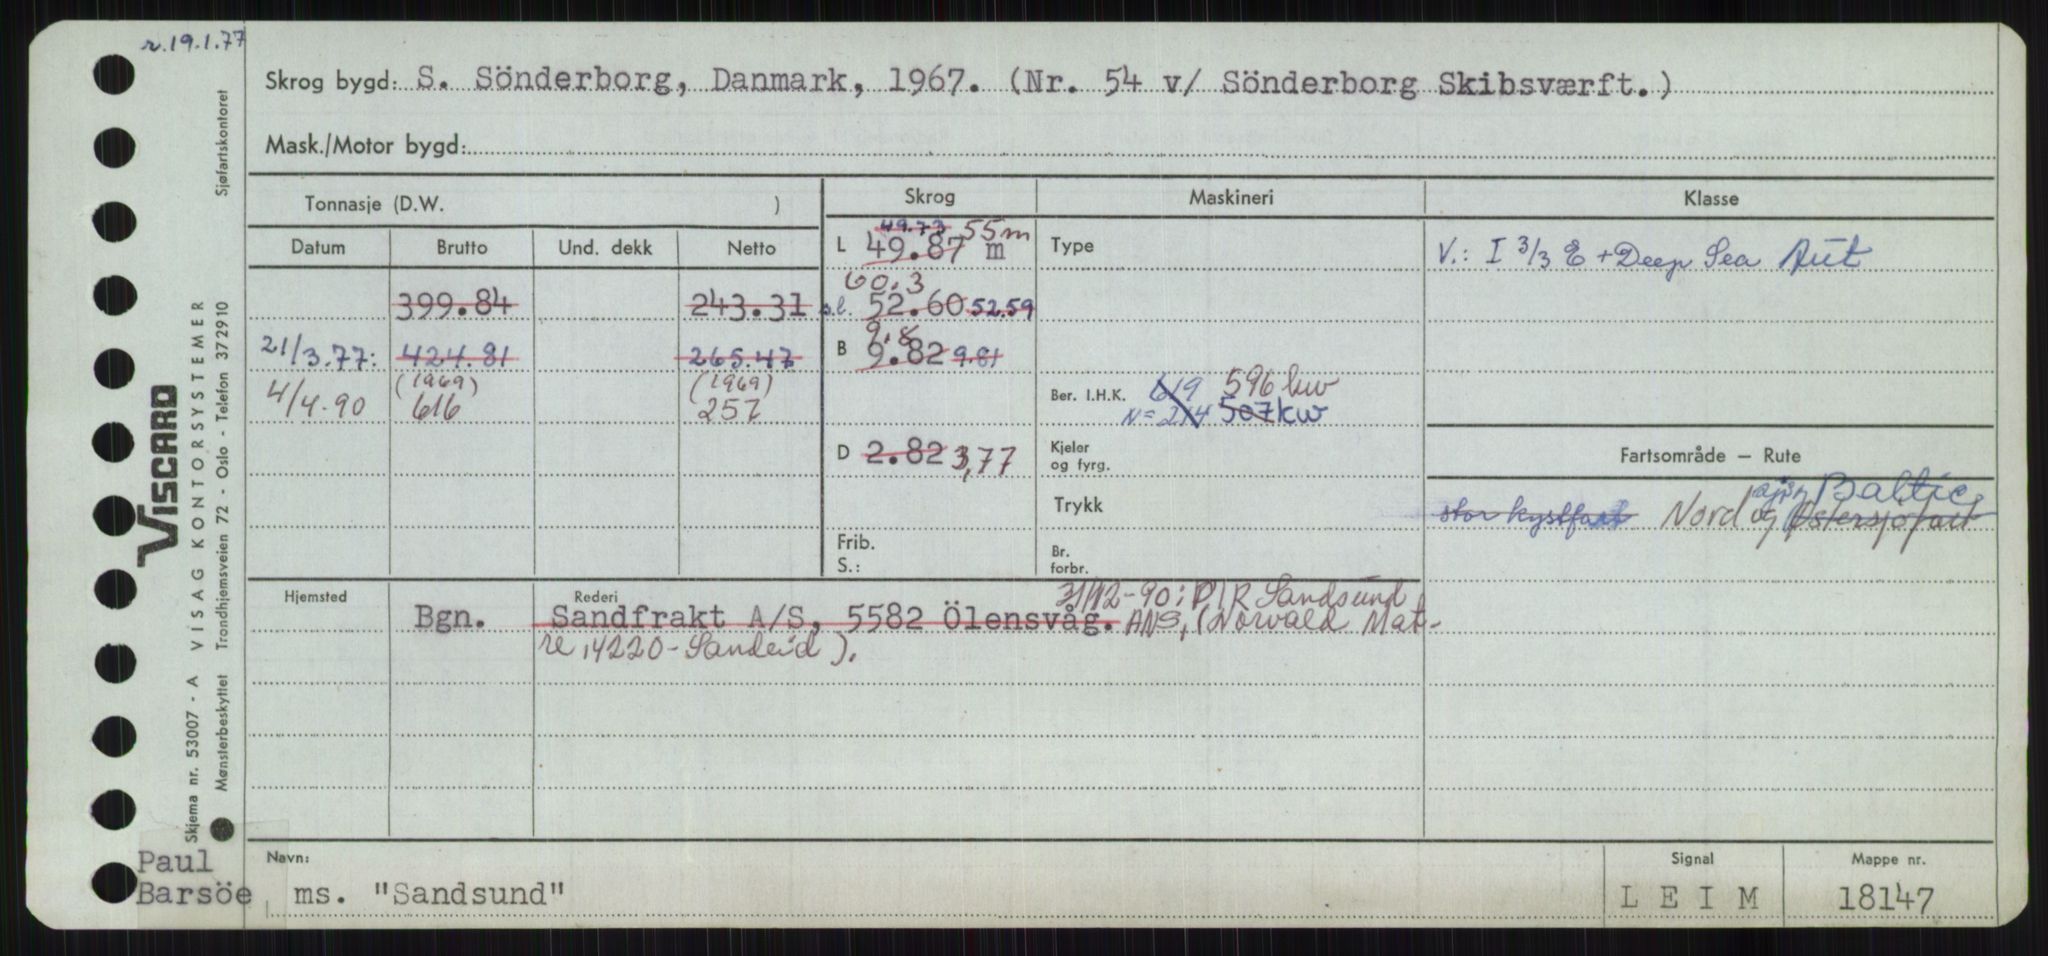 r. 19.1.77
Skrog bygd: S. Sönderborg, Danmark, 1967. (Nr. 54 v/ Sönderborg Skibsværft.)
Mask./Motor bygd:
Tonnasje (D.W. )
Skrog
Maskineri
Klasse
Datum Brutto Und. dekk Netto
49.73 55m
L 49.87 m
Type
V.: I 3/3 E + Deep Sea Aut
60.3
399.84 243.31
s.l. 52.60 52.59
9.8
21/3.77: 424.81 265.47
B 9.82 9.81
(1969) (1969)
4/4-90 616 257
Ber. I.H.K. 619 596 kw
N= 214 507kw
D 2.82 3,77
Kjeler
og fyrg.
Fartsområde — Rute
Trykk
stor kystfart Nord og Østersjøfart
Baltic
Frib.
S.:
Br.
forbr.
Hjemsted
Rederi
31/12-90: P/R Sandsund
Bgn. Sandfrakt A/S, 5582 Ölensvåg. ANS, (Norvald Mat-
re, 4220-Sandeid).
Navn:
Signal
Mappe nr.
Paul
Barsöe
ms. "Sandsund"
L E I M
18147
Skjema nr. 53007 - A VISAG KONTORSYSTEMER
Mønsterbeskyttet Trondhjemsveien 72 - Oslo - Telefon 372910 Sjøfartskontoret
VISCARD